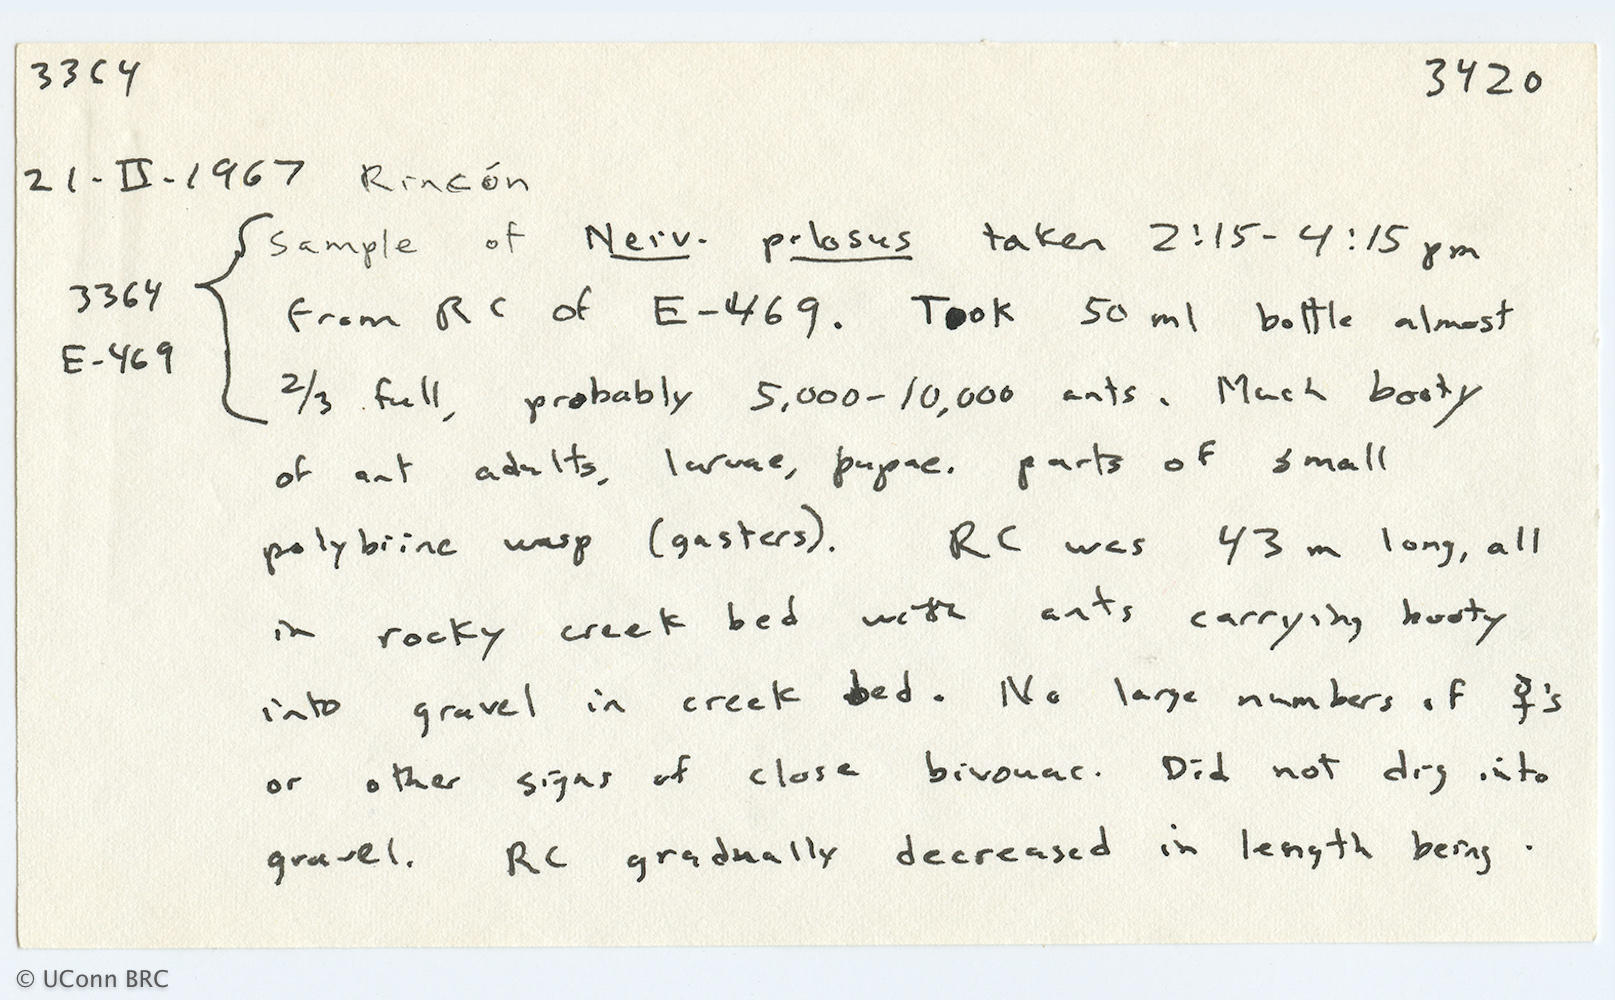 3364 3420
21-II-1967 Rincón
Sample of Neiv. pilosus taken 2:15-4:15 pm
3364 from RC of E-469. Took 50 ml bottle almost
E-469 2/3 full, probably 5,000-10,000 ants. Much booty
of ant adults, larvae, pupae. parts of small
polybiine wasp (gasters). RC was 43 m long, all
in rocky creek bed with ants carrying booty
into gravel in creek bed. No large numbers of ☿'s
or other signs of close bivouac. Did not dig into
gravel. RC gradually decreased in length being
© UConn BRC